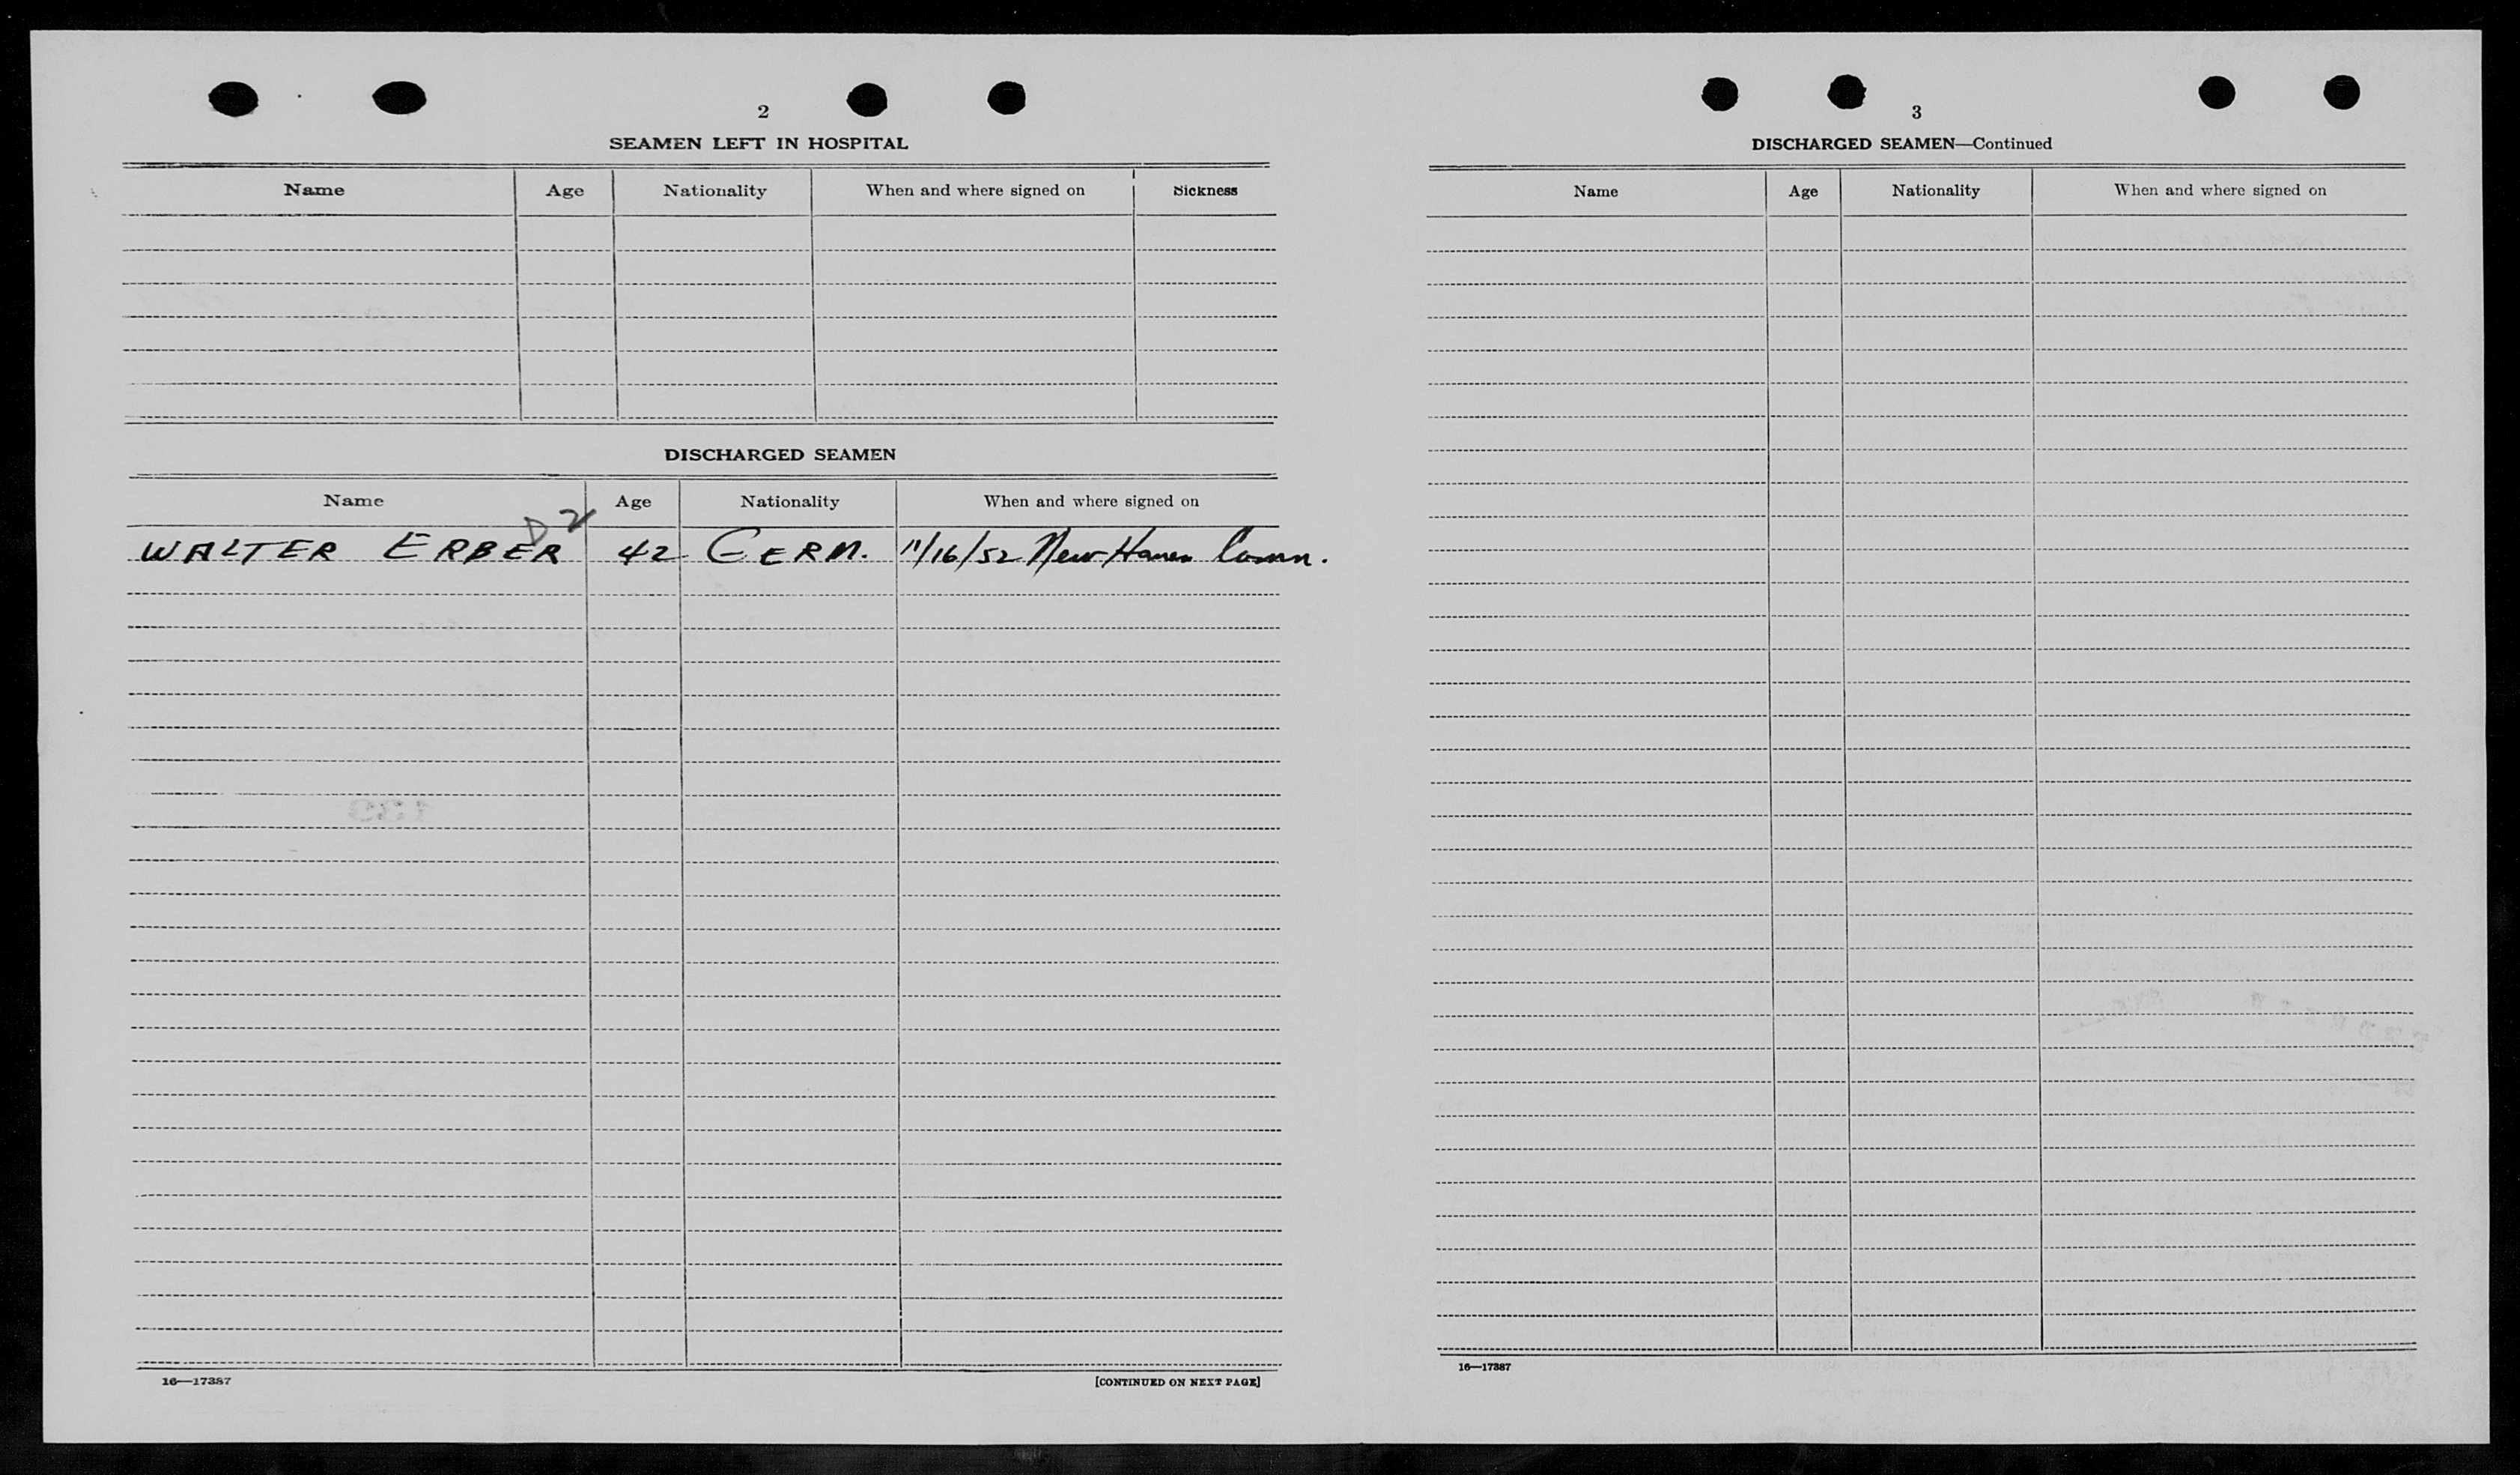 2
SEAMEN LEFT IN HOSPITAL
Name Age Nationality When and where signed on Sickness
DISCHARGED SEAMEN
Name Age Nationality When and where signed on
D 2
WALTER ERBER 42 GERM. 11/16/52 New Haven Conn.
16—17387
[CONTINUED ON NEXT PAGE]
3
DISCHARGED SEAMEN—Continued
Name Age Nationality When and where signed on
16—17387